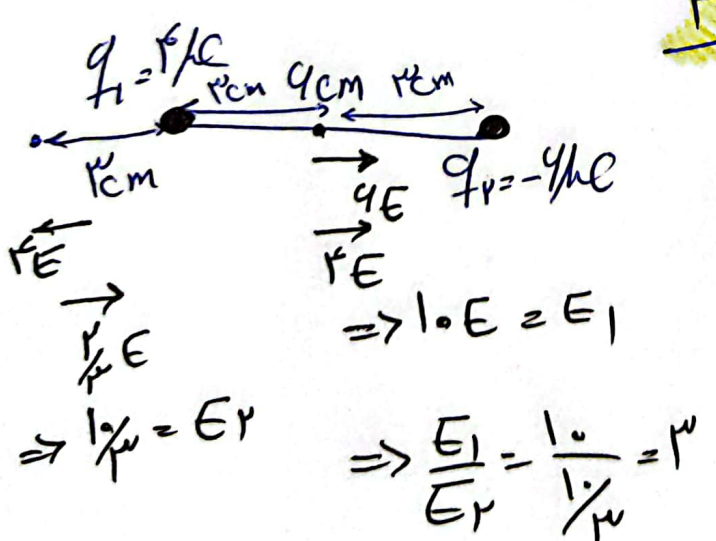 q₁ = ۴μC
۳cm ۶cm ۳cm
۳cm
q₂ = -۶μC
۶E
۴E
۴E
۲/۳ E
=> ۱۰E = E₁
=> ۱۰/۳ = E۲
=> E₁/E۲ = ۱۰/(۱۰/۳) = ۳